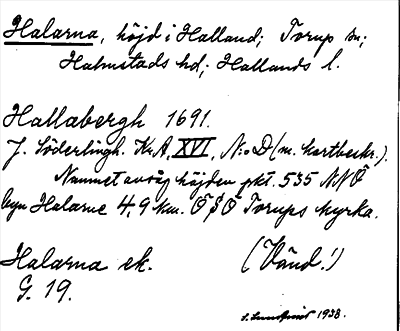 Halarna, höjd i Halland; Torup sn;
Halmstads hd; Hallands l.
Hallabergh 1691.
J. Söderlingh. K:A, XVI, N:o D (m. kartbeskr.).
Namnet avsåg höjden pkt. 535 NNO
byn Halarne 4,9 km. OSO Torups kyrka.
Halarna ek. (Vänd!)
G. 19.
1938.